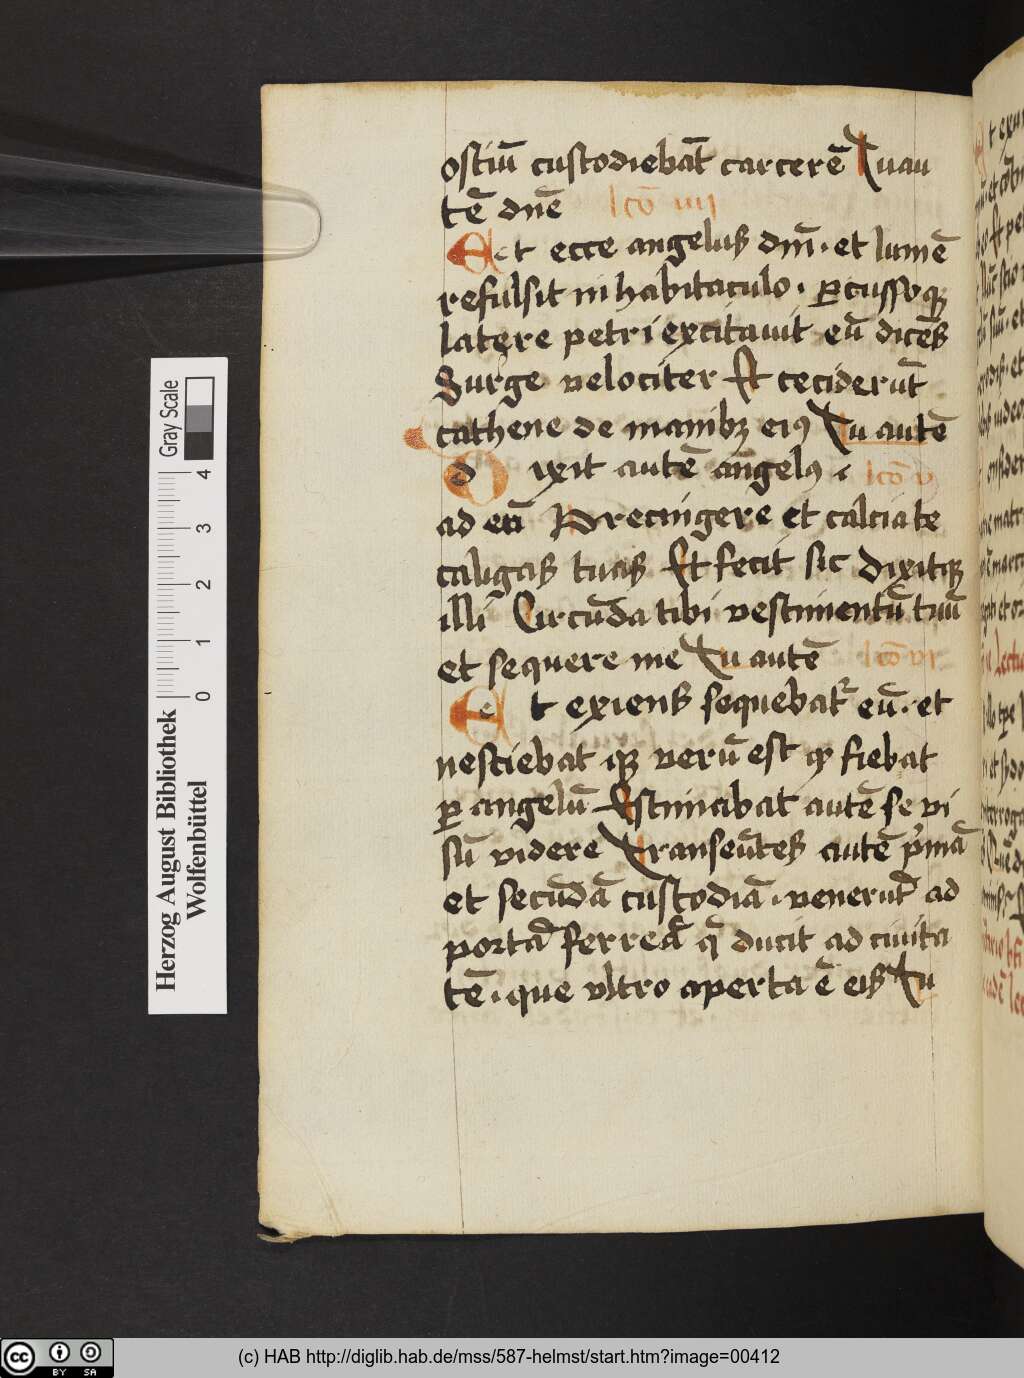 ostiū custodiebāt carcerē Tu au
tē dn̄e lcō iiij
Et ecce angelus dn̄i · et lumē
refulsit in habitaculo · ꝑcussoqꝫ
latere petri excitauit eū dicēs
Surge velociter Et ceciderūt
cathene de manibꝫ eiꝰ Tu autē
Dixit autē angelꝰ lcō v
ad eū Precingere et calcia te
caligas tuas Et fecit sic dixitqꝫ
illi Circūda tibi vestimentū tuū
et sequere me Tu autē lcō vi
Et exiens sequebatᷣ eū · et
nesciebat qꝫ verū est qꝫ fiebat
ꝑ angelū Estimabat autē se vi
sū videre Transeūtes autē pͥmā
et secūdā custodiā · venerūt ad
portā ferreā q̄ ducit ad ciuita
tē · que vltro aperta ē eis Tu
Herzog August Bibliothek
Wolfenbüttel
0 1 2 3 4
Gray Scale
(c) HAB http://diglib.hab.de/mss/587-helmst/start.htm?image=00412
cc BY SA